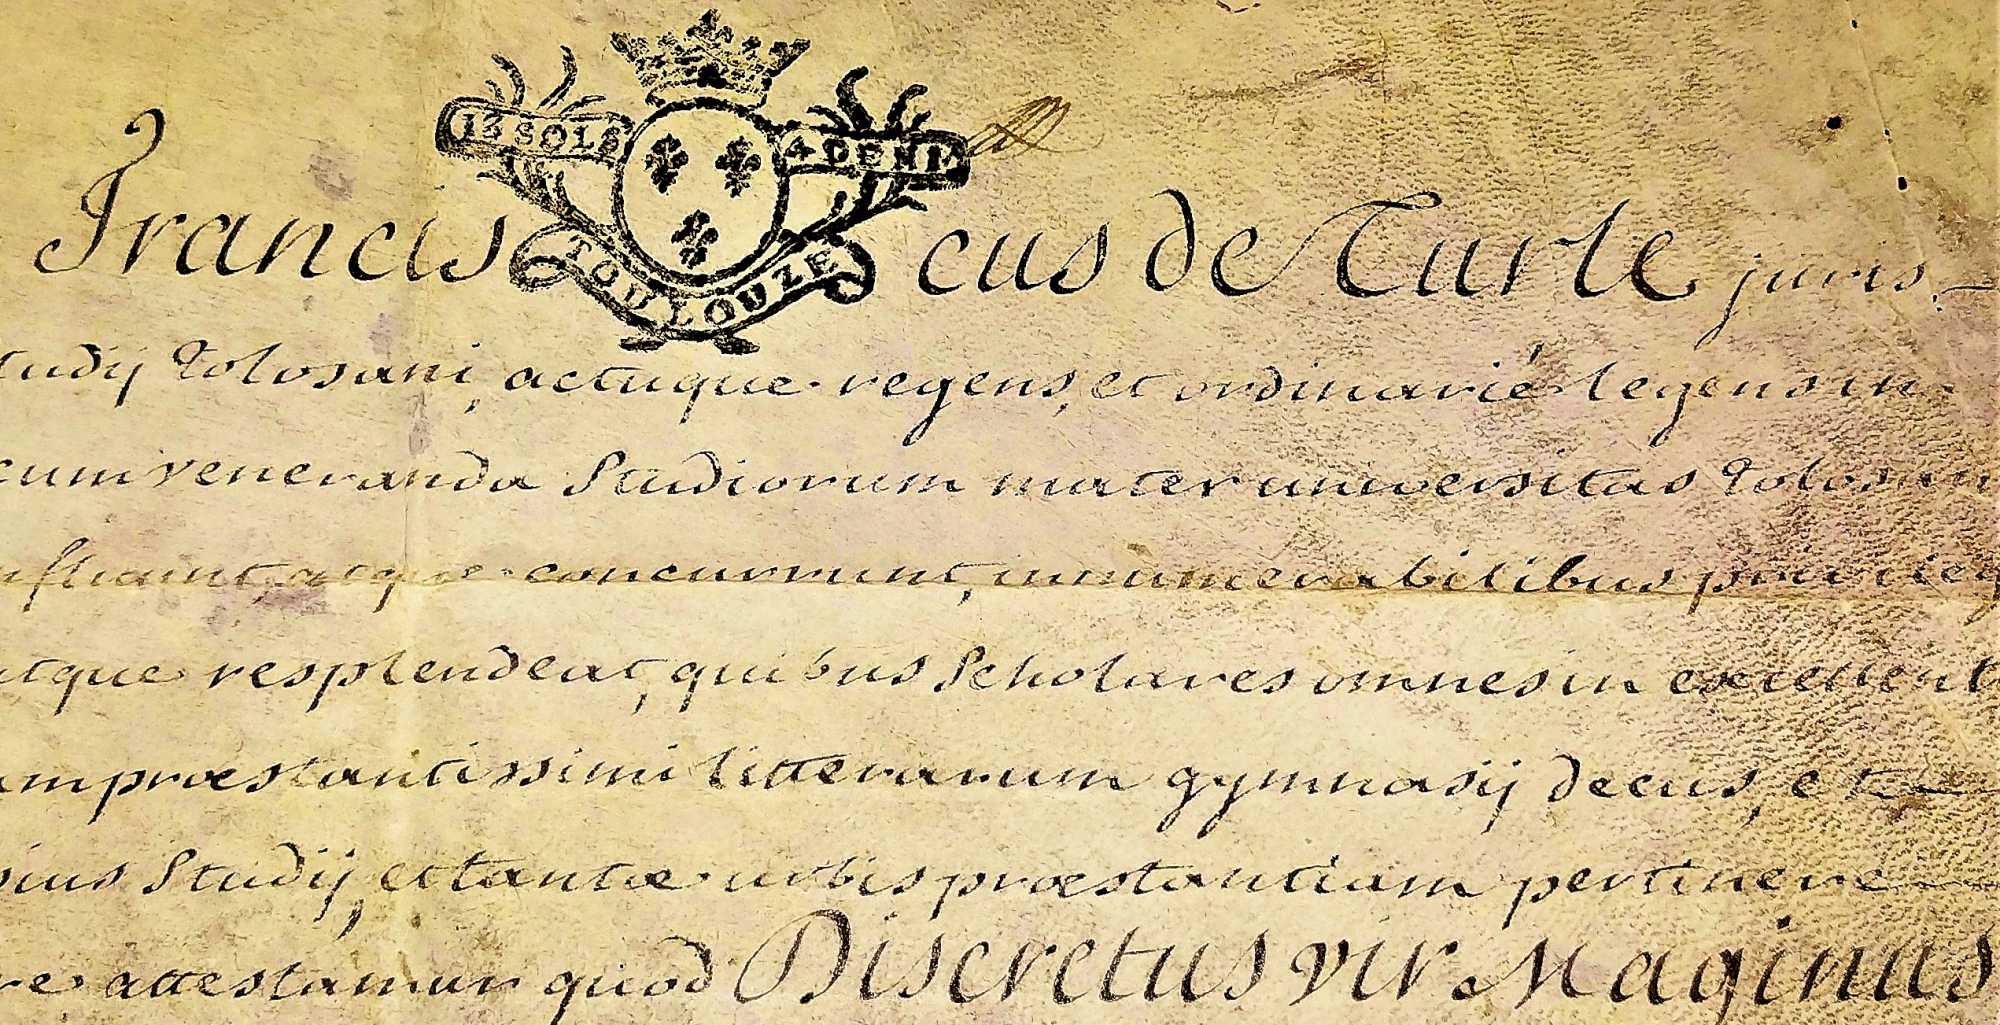 13 SOLS 4 DENI.
TOULOUZE
Francis cus de Turle juris.
tudij Tolosani, actuque regens, et ordinarié legens in
cum veneranda Studiorum mater universitas Tolosan
nfluunt, atque concurrunt, innumerabilibus privileg
atque resplendeat, quibus Scholares omnes in excellent
am præstantissimi litterarum gymnasij decus, et
sius Studij, et tantæ urbis præstantiam pertinere
re attestamur quod Discretus vir Maginus